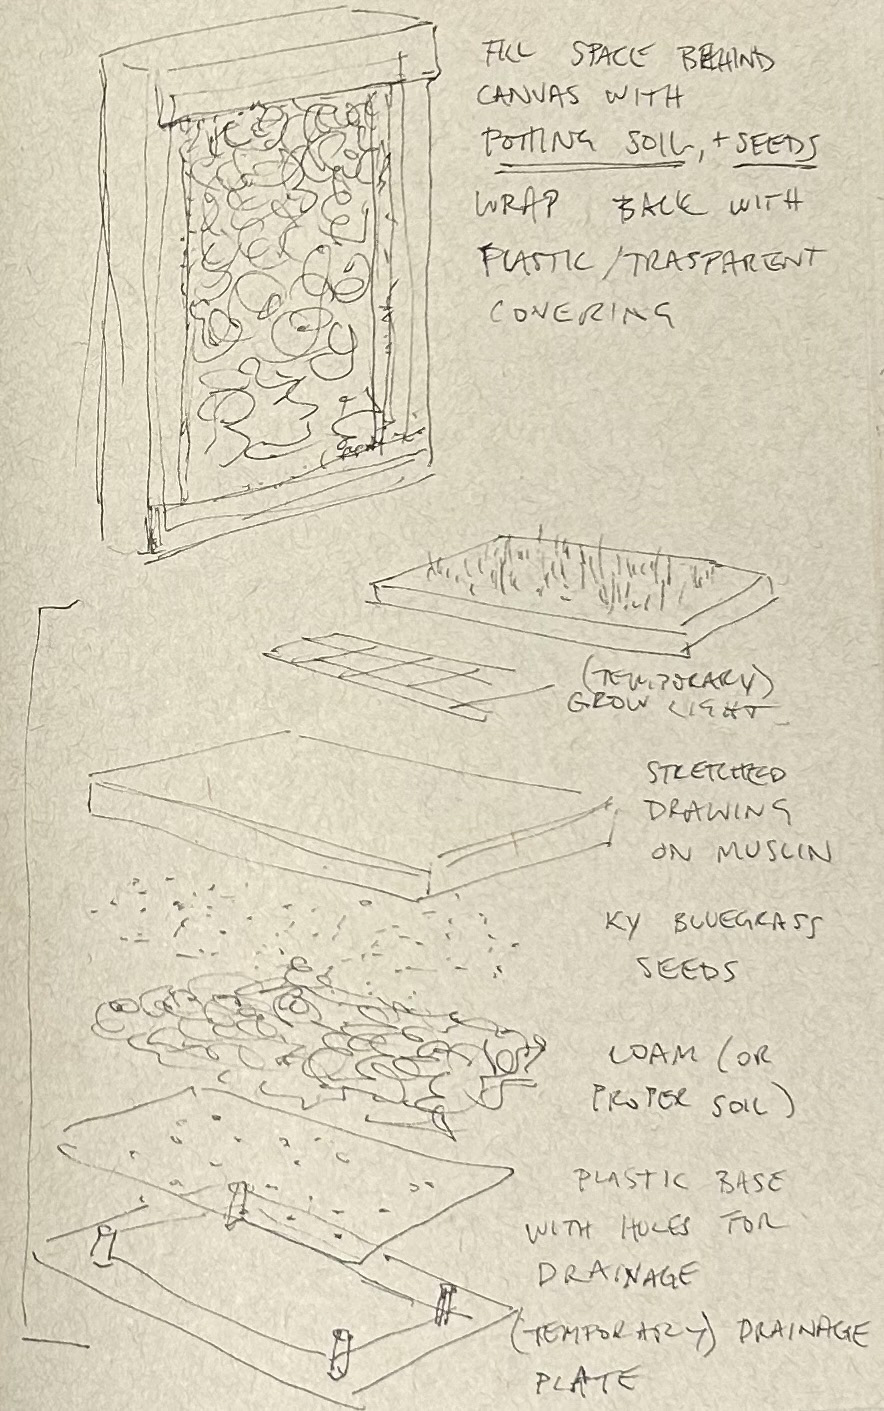 FILL SPACE BEHIND
CANVAS WITH
POTTING SOIL, + SEEDS
WRAP BACK WITH
PLASTIC/TRASPARENT
COVERING
(TEMPORARY)
GROW LIGHT
STRETCHED
DRAWING
ON MUSLIN
KY BLUEGRASS
SEEDS
LOAM (OR
PROPER SOIL)
PLASTIC BASE
WITH HOLES FOR
DRAINAGE
(TEMPORARY) DRAINAGE
PLATE